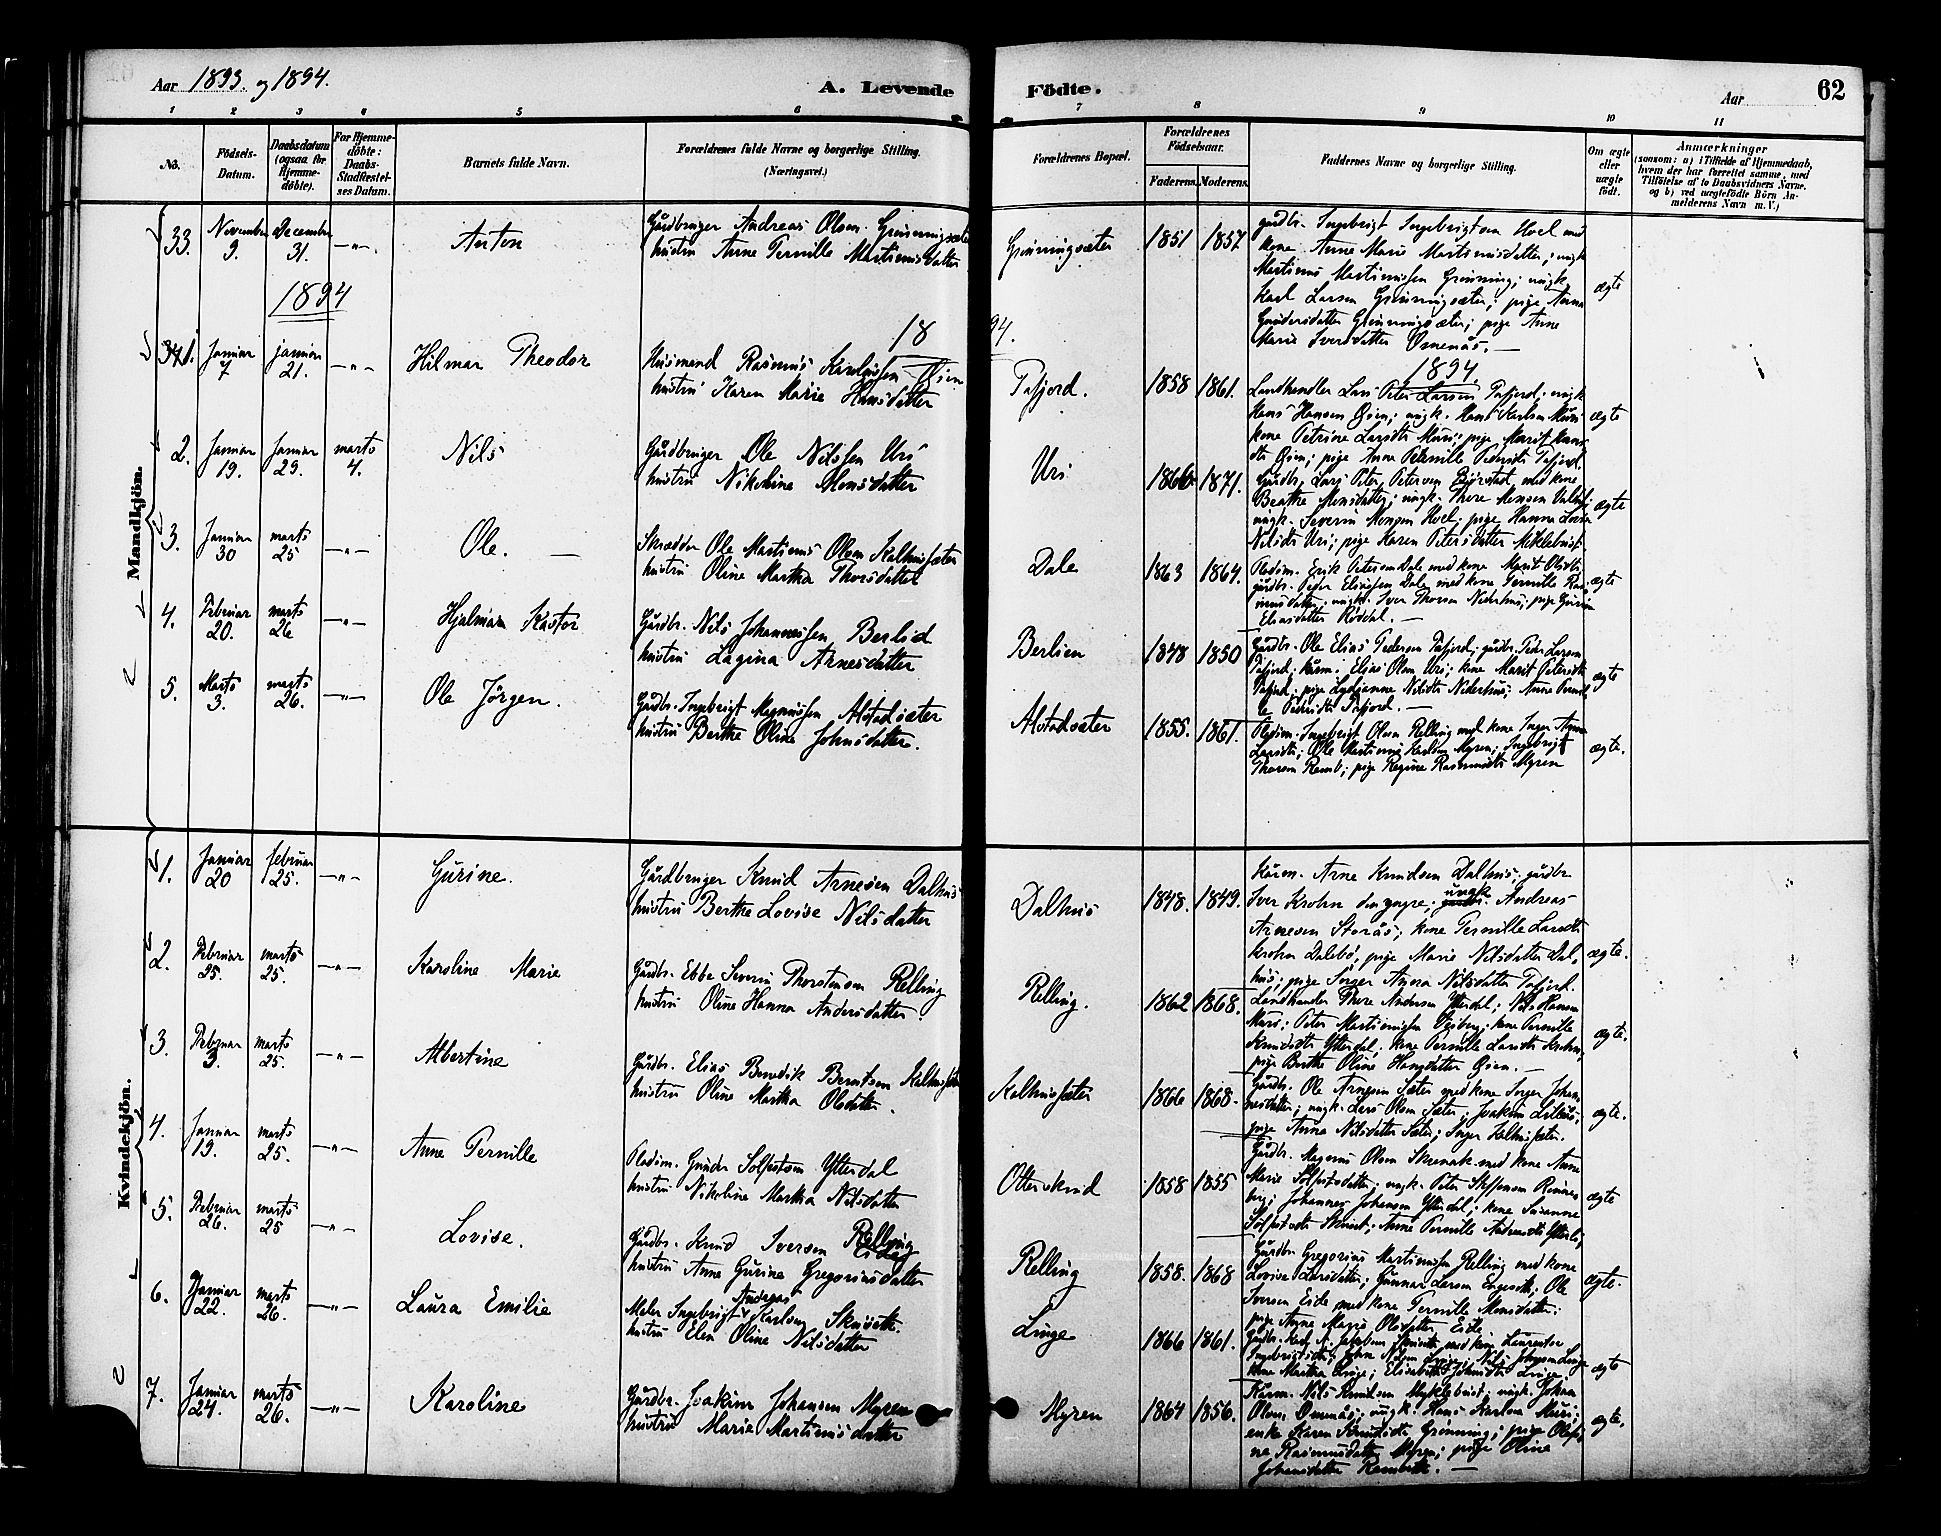 Aar 1893 og 1894.
A. Levende Födte.
Aar
62
1 2 3 4 5 6 7 8 9 10 11
No.
Födsels-Datum.
Daabsdatum (ogsaa for Hjemmedöbte).
For Hjemmedöbte: Daabs-Stadfæstelses Datum.
Barnets fulde Navn.
Forældrenes fulde Navne og borgerlige Stilling. (Næringsvei.)
Forældrenes Bopæl.
Forældrenes Födselsaar.
Faderens. Moderens.
Faddernes Navne og borgerlige Stilling.
Om ægte eller uægte födt.
Anmærkninger
(saasom: a) i Tilfælde af Hjemmedaab, hvem der har forrettet samme, med Tilföielse af to Daabsvidners Navne, og b) ved uægtefödte Börn Anmelderens Navn m. V.)
Mandkjön.
33. November 9. December 31. —„— Anton
Gårdbruger Andreas Olsen Grönningsæter
hustru Anne Pernille Martinusdatter
Grönningsæter 1851 1857
gårdbr. Ingebrigt Ingebrigtsen Hoel med
kone Anne Marie Martinusdatter; ungk.
Martinus Martinussen Grönning; ungk.
Karl Larsen Grönningsæter; pige Anna
Gundersdatter Grönningsæter; pige Anne
Marie Iversdatter Omenås. —
ægte
1894
1894.
1894.
1. Januar 7 januar 21. —„— Hilmar Theodor
Husmand Rasmus Karlussen Öien
hustru Karen Marie Hansdatter
Tafjord. 1858 1861.
Landhandler Lars Peter Larsen Tafjord; ungk.
Hans Hansen Öien; ungk. Hans Karlsen Muri
kone Petrine Larsdtr Muri; pige Marit Hansdtr Öien; pige Anne Pernille
ægte
2. Januar 19. Januar 29. marts 4. Nils
Gårdbruger Ole Nilssen Uri
hustru Nikoline Monsdatter
Uri 1866 1871.
Gårdbr. Lars Peter Petersen Björstad med kone
Beathe Monsdatter; ungk. Thore Monsen
ungk. Severin Monsen Hoel; pige Hanna Lovise
Nilsdtr Uri; pige Karen Petersdatter Myklebust.
ægte
3. Januar 30 marts 25 —„— Ole. —
Skrædder Ole Martinus Olsen Kalhussæter
hustru Oline Martha Thorsdatter
Dale 1863 1864.
Pladsm. Erik Petersen Dale med kone Marit Olsdtr;
gårdbr. Peder Eliassen Dale med kone Pernille Rasmusdatter; ungk. Iver Thorsen Nederhus; pige Gurine
Eliasdatter Röddal. —
ægte
4. Februar 20. marts 26 —„— Hjalmar Kastor
Gårdbr. Nils Johannessen Berlid
hustru Lagina Arnesdatter
Berlien 1848 1850
Gårdbr. Ole Elias Pedersen Tafjord; gårdbr. Peder Larsen
Tafjord; Elias Olsen Uri; kone Marit Petersdtr
Tafjord; pige Lydianne Nilsdtr Nederhus; Anne
Tafjord. —
ægte
5. Marts 3. marts 26. —„— Ole Jörgen.
Gårdbr. Ingebrigt Magnussen Alstadsæter
hustru Berthe Oline Johnsdatter.
Alstadsæter 1855. 1861.
Pladsm. Ingebrigt Olsen Relling med kone Inger Anna
Larsdtr; Ole Martinus Karlsen Myren; Ingebrigt
Thorsen Remb; pige Regine Rasmusdtr Myren
ægte.
Kvindekjön.
1. Januar 20 februar 25. —„— Gurine.
Gårdbruger Knud Arnesen Dalhus
hustru Berthe Lovise Nilsdatter
Dalhus 1848. 1849.
Kårm. Arne Knudsen Dalhus; gårdbr.
Iver Krohn den yngre; ungk. Andreas
Arnesen Storås; kone Pernille Larsdtr
Krohn Dalebö; pige Marie Nilsdatter Dalhus; pige Inger Anna Nilsdatter Tafjord.
ægte.
2. Februar 25. marts 25. —„— Karoline Marie
Gårdbr. Ebbe Severin Thorstensen Relling
hustru Oline Hanna Andersdatter.
Relling. 1862 1868.
Landhandler Thore Andersen Ytterdal; Nils Hansen
Muri; Peter Martinussen; kone Pernille
Knudsdtr Ytterdal; kone Pernille Larsdtr Krohn,
pige Berthe Oline Hansdatter Öien. —
ægte.
3. Februar 3. marts 25. —„— Albertine
Gårdbr. Elias Benedik Berntsen Kalhussæter
hustru Oline Martha Olsdatter.
Kalhussæter 1866 1868.
Gårdbr. Ole Arnesen Sæter med kone Inger Johannesdatter; ungk. Lars Olsen Sæter; Joakim;
pige Anna Nilsdatter Sæter; Inger Kalhussæter.
ægte.
4. Januar 19. marts 25. —„— Anne Pernille
Pladsm. Gunder Solfestsen Ytterdal
hustru Nikoline Martha Nilsdatter
Otterskred 1858 1855
Gårdbr. Magnus Olsen med kone Anne
Marie Solfestsdatter; ungk. Peter Steffensen; Johannes Johansen Ytterdal; kone Susanne
Solfestsdtr; Anne Pernille Andersdtr
ægte
5. Februar 26. marts 25 —„— Lovise.
Gårdbr. Knud Iversen Relling
hustru Anne Gurine Gregoriusdatter
Relling 1858. 1868
Gårdbr. Gregorius Martinussen Relling med kone
Lovise Larsdatter; Gunnar Larsen Engeseth; Ole
Iversen Eide med kone Pernille Monsdatter;
pige Anne Marie Olsdatter Eide
ægte.
6. Januar 22. marts 26. —„— Laura Emilie
Maler Ingebrigt Andreas Karlsen
hustru Elen Oline Nilsdatter
Linge 1866 1861.
ægte
7. Januar 24. marts 26. —„— Karoline
Gårdbr. Joakim Johansen Myren
hustru Marie Martinusdatter
Myren 1864 1856.
Kårm. Nils Knudsen Myklebust; ungk. Johan
Olsen Omenås; ungk. Hans Karlsen Muri;
enke Karen Knudsdtr Grönning; pige Olefine Rasmusdatter Myren; pige Oline
Johansdatter. —
ægte.